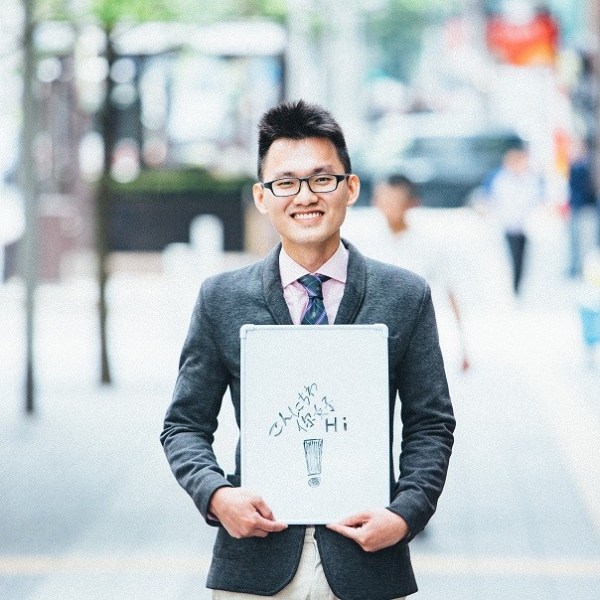 こんにちは
你好
Hi